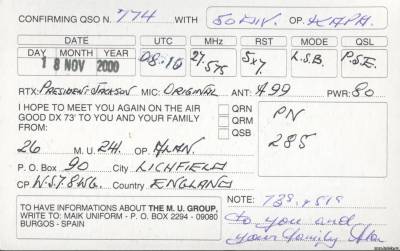 CONFIRMING QSO N. 774 WITH 50 DIV. OP. KAPA.
DATE UTC MHz RST MODE QSL
DAY MONTH YEAR
18 NOV 2000 08:10 27.575 5x7. L.S.B. P.S.E.
RTX: PRESIDENT JACKSON MIC: ORIGINAL ANT: A99 PWR: 80
I HOPE TO MEET YOU AGAIN ON THE AIR
GOOD DX 73' TO YOU AND YOUR FAMILY
FROM:
QRN
QRM
QSB
PN
285
26 M. U. 241. OP ALAN.
P. O. Box 90 City LICHFIELD
CP WS78WG. Country ENGLAND
TO HAVE INFORMATIONS ABOUT THE M. U. GROUP,
WRITE TO: MAIK UNIFORM - P. O. BOX 2294 - 09080
BURGOS - SPAIN
NOTE: 73s. +51s
to you and
your family Alan